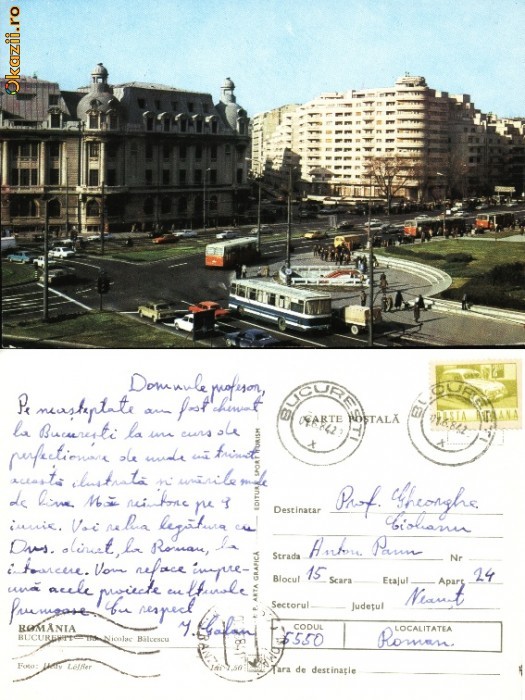 Okazii.ro
Domnule profesor,
Pe neașteptate am fost chemat
la București la un curs de
perfecționare de unde vă trimit
această ilustrată și urările mele
de bine. Mă reîntorc pe 9
iunie. Voi relua legătura cu
Dvs. direct, la Roman, la
întoarcere. Vom reface împre-
ună acele proiecte culturale
frumoase. Cu respect
ROMÂNIA
BUCUREȘTI — Bd. Nicolae Bălcescu
Foto: Hedy Löffler
Lei 1,50
EDITURA SPORT TURISM
I. P. ARTA GRAFICĂ
BUCUREȘTI
CARTE POȘTALĂ
BUCUREȘTI
POSTA ROMANA
Destinatar Prof. Gheorghe
Ciobanu
Strada Anton Pann Nr
Blocul 15 Scara Etajul Apart 24
Sectorul Județul Neamț
CODUL LOCALITATEA
5550 Roman.
Țara de destinație